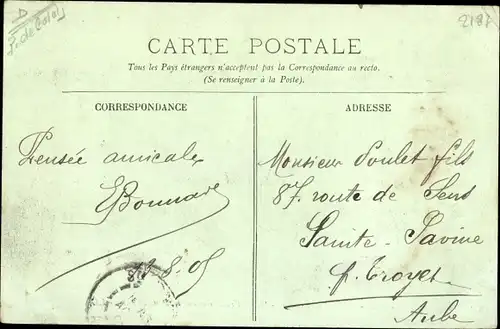 P. de Calais
2187
CARTE POSTALE
Tous les Pays étrangers n'acceptent pas la Correspondance au recto.
(Se renseigner à la Poste).
CORRESPONDANCE
Pensée amicale
EBonnard
8-05
ADRESSE
Monsieur Poulet fils
87 route de Sens
Sainte-Savine
p. Troyes
Aube